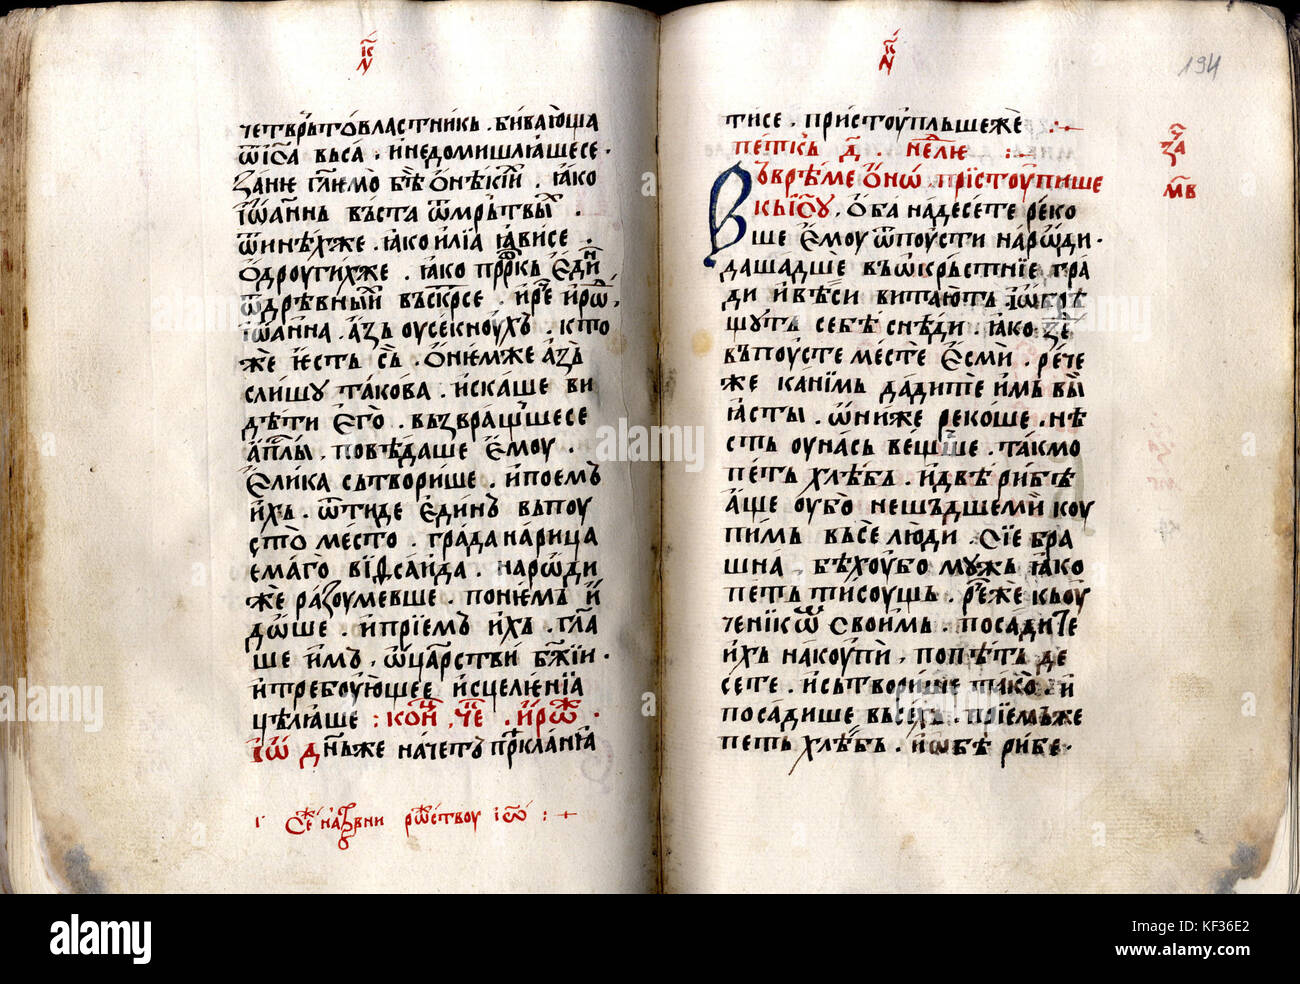 і҃к
л҃у
четврьтовластникь · бивающа
ѿ іс҃а въса · и недомишлꙗшесе ·
зане гл҃емо бѣ ѡ нѣкыи · ꙗко
іѡаннь въста ѿ мрътвы ·
ѿ инѣхже · ꙗко илїа ꙗвисе ·
ѡ дроугихже · ꙗко пр҃ркь един
ѿ дрѣвныи въскрсе · и рⷱе ирѡⷣ ·
іѡанна · азъ оусекноухъ · кто
же ѥсть съ · ѡ нѥмже азъ
слишу такова · и искаше ви
дѣти его · възвращшесе
ап҃лы · повѣдаше ѥмоу ·
елика сътворише · и поемъ
ихъ · ѿтиде единь въ поу
сто место · града нарица
емаго віѳсаида · народи
же разоумевше · по нѥмъ и
дѡше · и прїемъ ихъ · гл҃а
ше имъ · ѡ царствїи бж҃їи ·
и требоующее исцелѥнїа
цѣлꙗше : коⷩ҇ц чⷮе · и рⷪ҇ж ·
іѡ днⷭ҇ьже начетъ прⷣкланꙗ
г҃ сⷤе назⷣвни рⷤоства іѡ : +
і҃к
л҃у
194
тисе · пристоупльшеже
петкь д҃ · неⷣлѥ
въ врѣме ѡно · прїстоупише
къ іс҃оу · оба надесете реко
ше ѥмоу ѿпоусти народи ·
да шадше въ ѡкрьстнїе гра
ди и вѣси витають и ѡбрѣ
щуть себѣ снѣди · ꙗко зе
въ поусте месте есми · рече
же к нимь дадите имъ вы
ꙗсты · ѡниже рекоше · нѣ
сть оу нась вещше · такмо
петь хлѣбь · и двѣ рибѣ
аще оубо не шъдше ми коу
пимъ въсе люди · сїе бра
шна · бѣхоу бо мужъ ꙗко
петь тисоущь · рⷱеже къ оу
ченїкѡ своимь · посадите
ихъ на коупи · по петь де
сете · и сътворише тако · и
посадише въсехъ · прїемьже
петь хлѣбь · и ѡбѣ рибе ·
за҃
м҃в
alamy
alamy stock photo
KF36E2
www.alamy.com